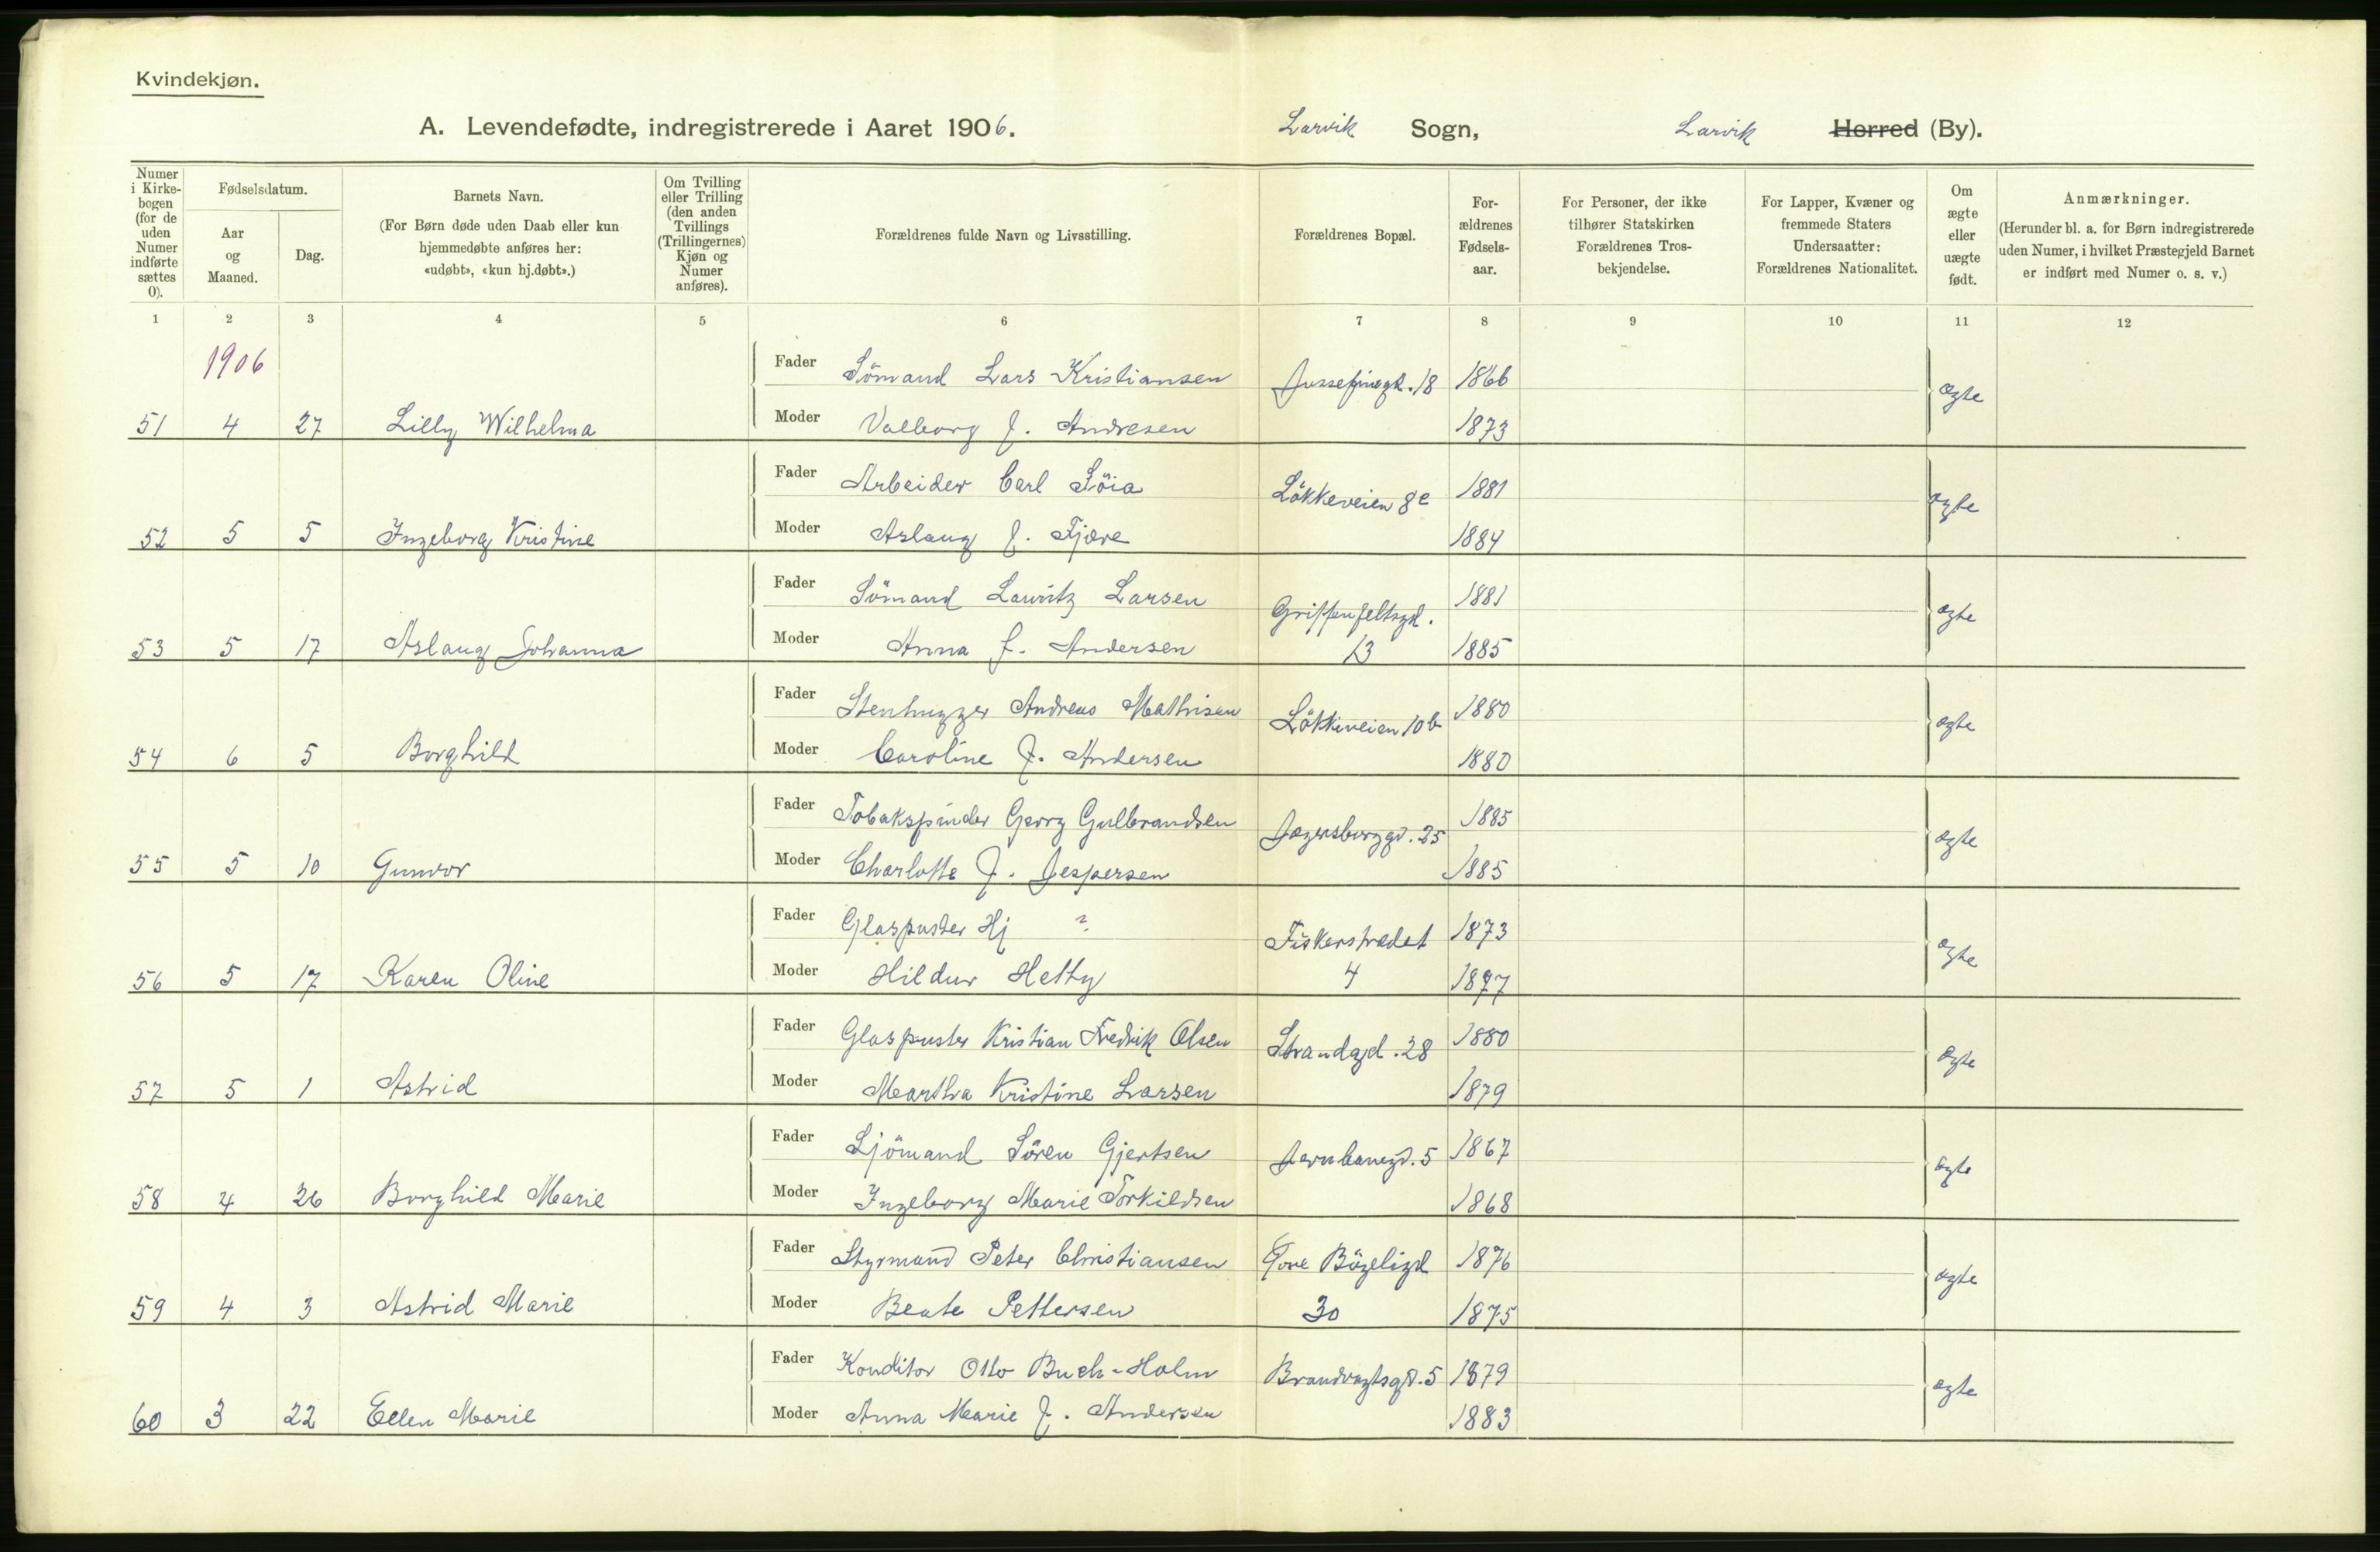 Kvindekjøn.
A. Levendefødte, indregistrerede i Aaret 1906. Larvik Sogn, Larvik Herred (By).
Numer i Kirkebogen (for de uden Numer indførte sættes 0).
Fødselsdatum.
Aar og Maaned.
Dag.
Barnets Navn.
(For Børn døde uden Daab eller kun hjemmedøbte anføres her: «udøbt», «kun hj.døbt».)
Om Tvilling eller Trilling (den anden Tvillings (Trillingernes) Kjøn og Numer anføres).
Forældrenes fulde Navn og Livsstilling.
Forældrenes Bopæl.
For-ældrenes Fødsels-aar.
For Personer, der ikke tilhører Statskirken Forældrenes Tros-bekjendelse.
For Lapper, Kvæner og fremmede Staters Undersaatter: Forældrenes Nationalitet.
Om ægte eller uægte født.
Anmærkninger.
(Herunder bl. a. for Børn indregistrerede uden Numer, i hvilket Præstegjeld Barnet er indført med Numer o. s. v.)
1 2 3 4 5 6 7 8 9 10 11 12
1906
Fader Sömand Lars Kristiansen Jossefinegt. 18 1866 ægte
51 4 27 Lilly Wilhelma Moder Valborg f. Andresen 1873
Fader Arbeider Carl Söia Lökkeveien 8c 1881 ægte
52 5 5 Ingeborg Kristine Moder Aslaug f. Fjære 1884
Fader Sömand Lauritz Larsen Griffenfeltsgd. 1881 ægte
53 5 17 Aslaug Johanna Moder Anna f. Andersen 13 1885
Fader Stenhugger Andreas Mathisen Lökkeveien 10b 1880 ægte
54 6 5 Borghild Moder Caroline f. Andersen 1880
Fader Tobakspinder Georg Gulbrandsen Jegersborggd. 25 1885 ægte
55 5 10 Gunvor Moder Charlotte f. Jespersen 1885
Fader Glaspuster Hj ? Fiskerstrædet 1873 ægte
56 5 17 Karen Oline Moder Hildur Hetty 4 1877
Fader Glaspuster Kristian Fredrik Olsen Strandgd. 28 1880 ægte
57 5 1 Astrid Moder Martha Kristine Larsen 1879
Fader Sjömand Sören Gjertsen Jernbanegd. 5 1867 ægte
58 4 26 Borghild Marie Moder Ingeborg Marie Torkildsen 1868
Fader Styrmand Peter Christiansen Övre Bögeligd 1876 ægte
59 4 3 Astrid Marie Moder Beate Pettersen 30 1875
Fader Konditor Otto Buch-Holm Brandvagtsgd. 5 1879 ægte
60 3 22 Ellen Marie Moder Anna Marie f. Andersen 1883